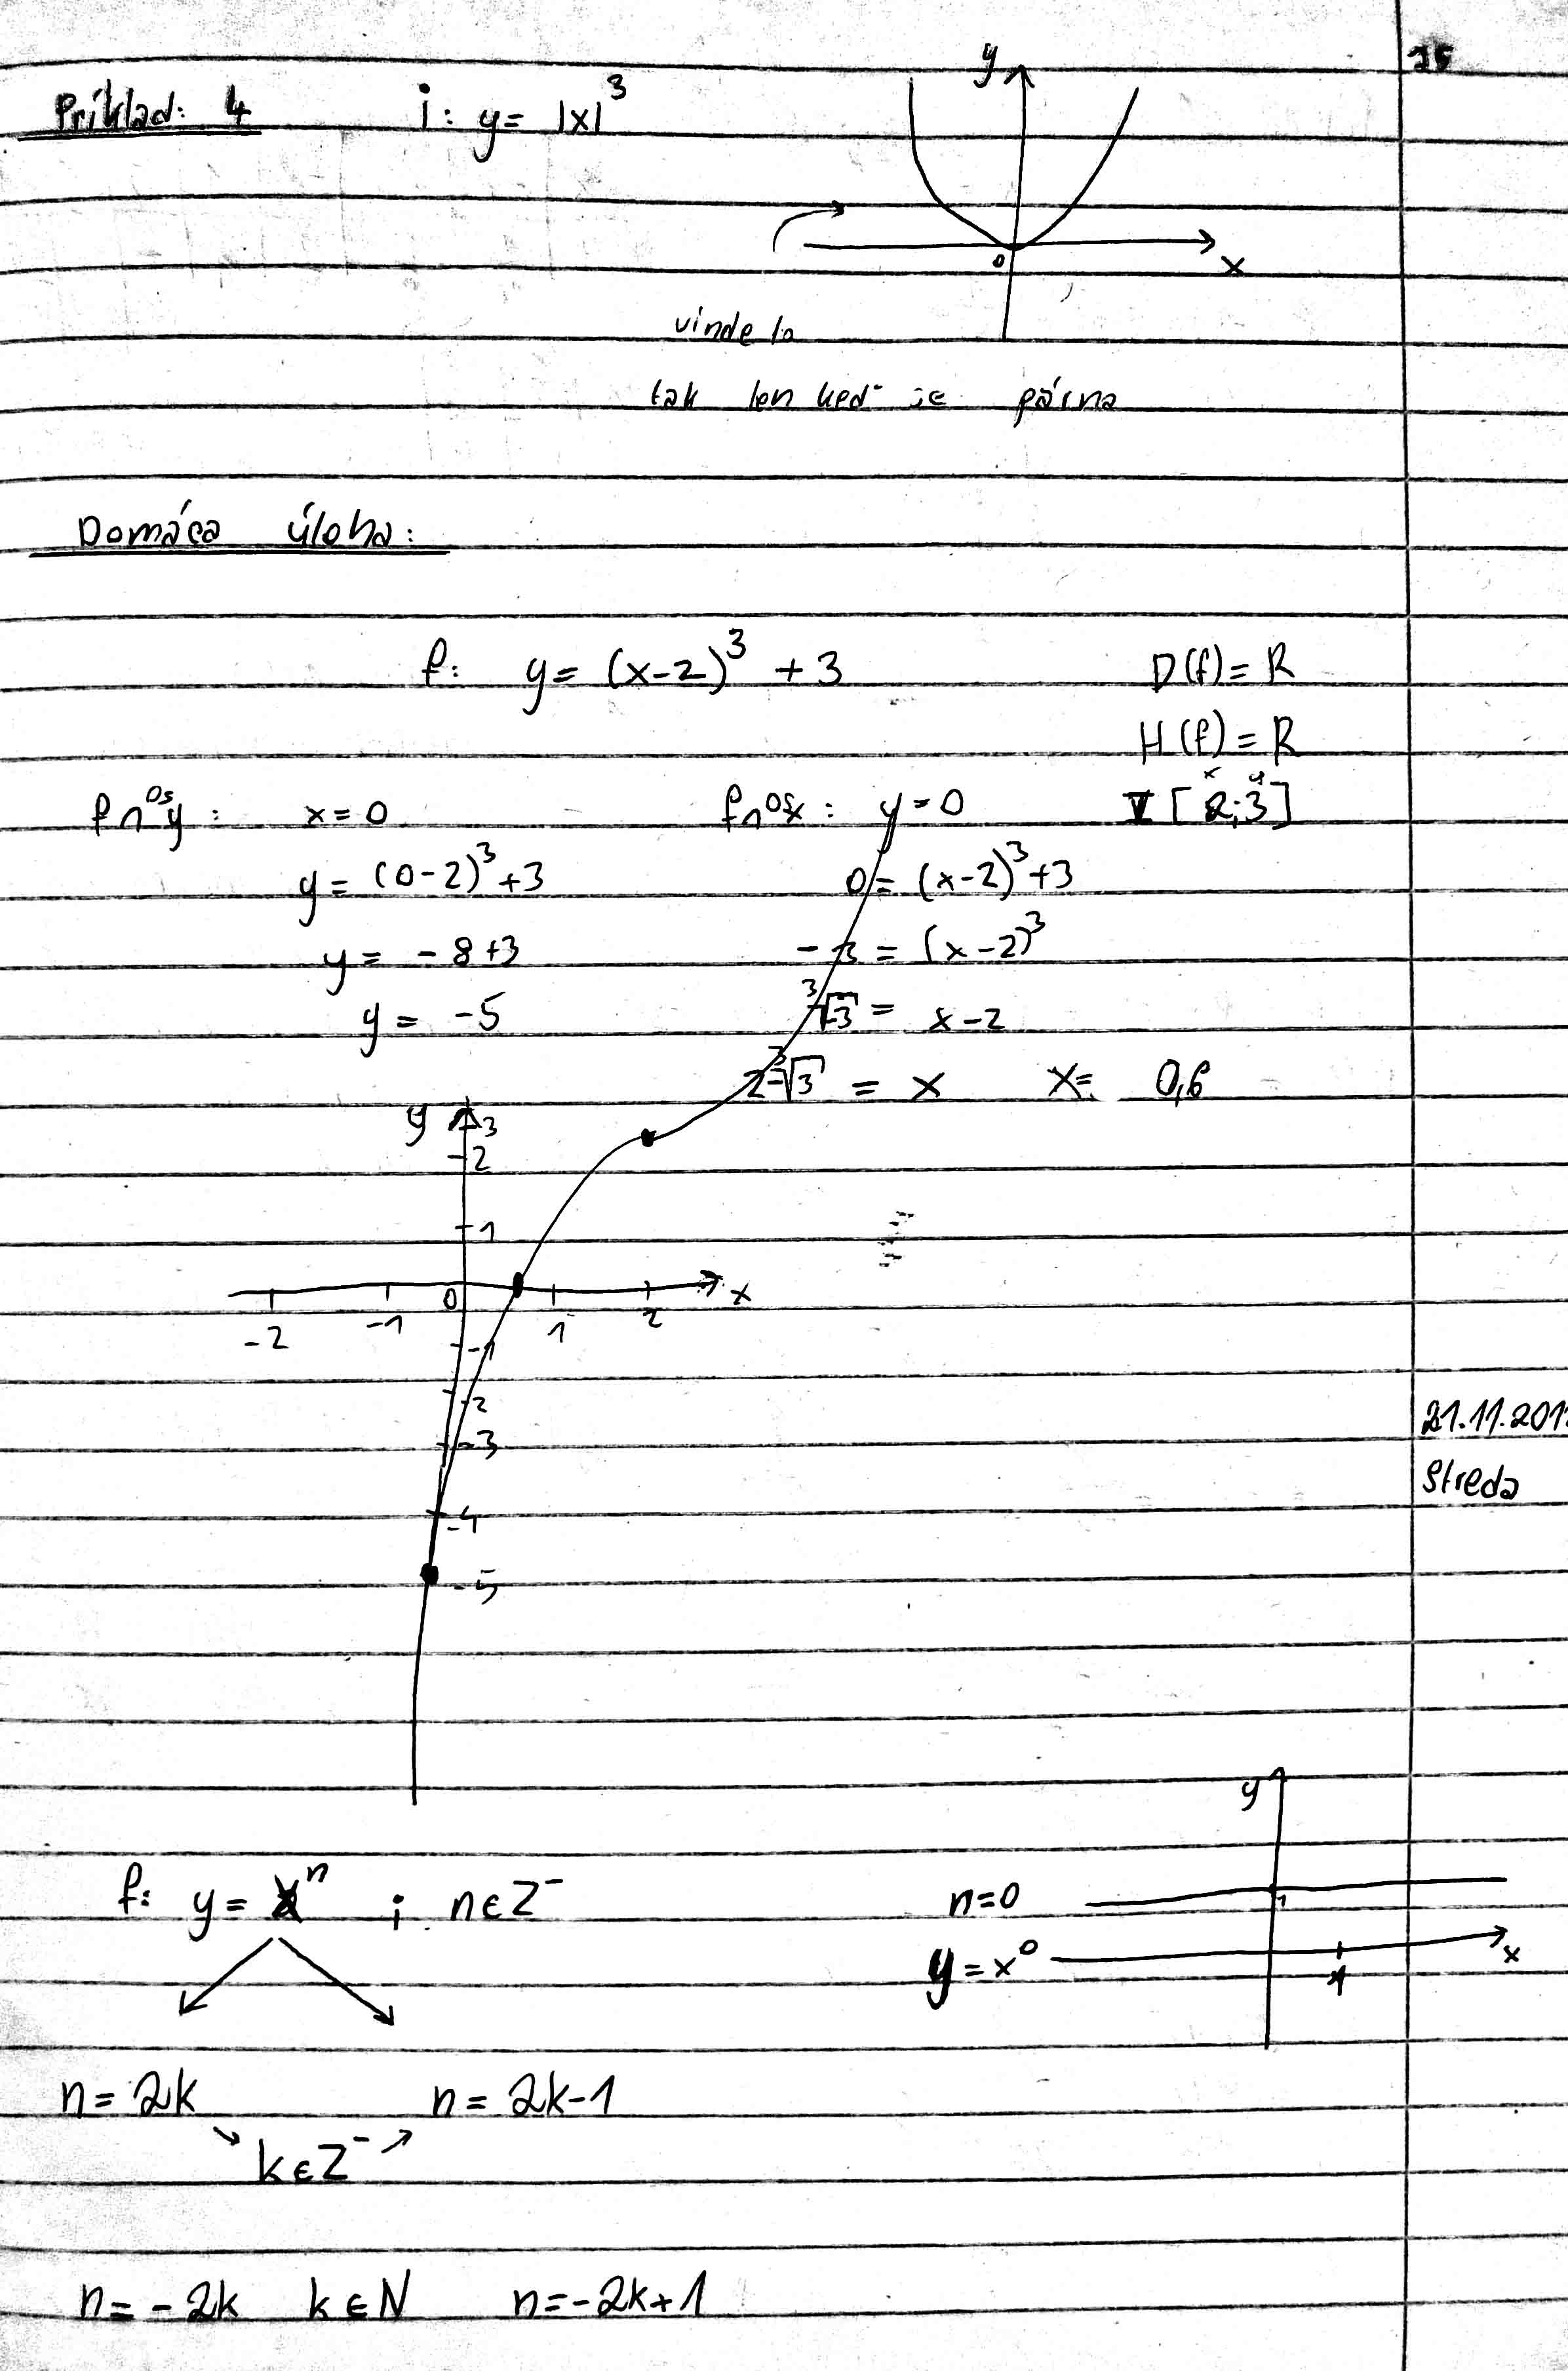 25
Príklad: 4 i: y= |x|³
y
0 x
tak len keď je párna
Domáca úloha:
f: y= (x-2)³ +3 D(f)= R
H(f)= R
f∩os y: x=0 f∩os x: y=0 V[2;3]
x y
y= (0-2)³+3 0= (x-2)³+3
y= -8+3 -3 = (x-2)³
y= -5 ³√-3 = x-2
2-³√3 = x x= 0,6
y 3
2
1
-2 -1 0 1 2 x
-1
-2
-3
-4
-5
21.11.201
Streda
f: y= xⁿ ; n∈Z⁻ n=0
y=x⁰
y
1
1 x
n= 2k n= 2k-1
k∈Z⁻
n= -2k k∈N n=-2k+1